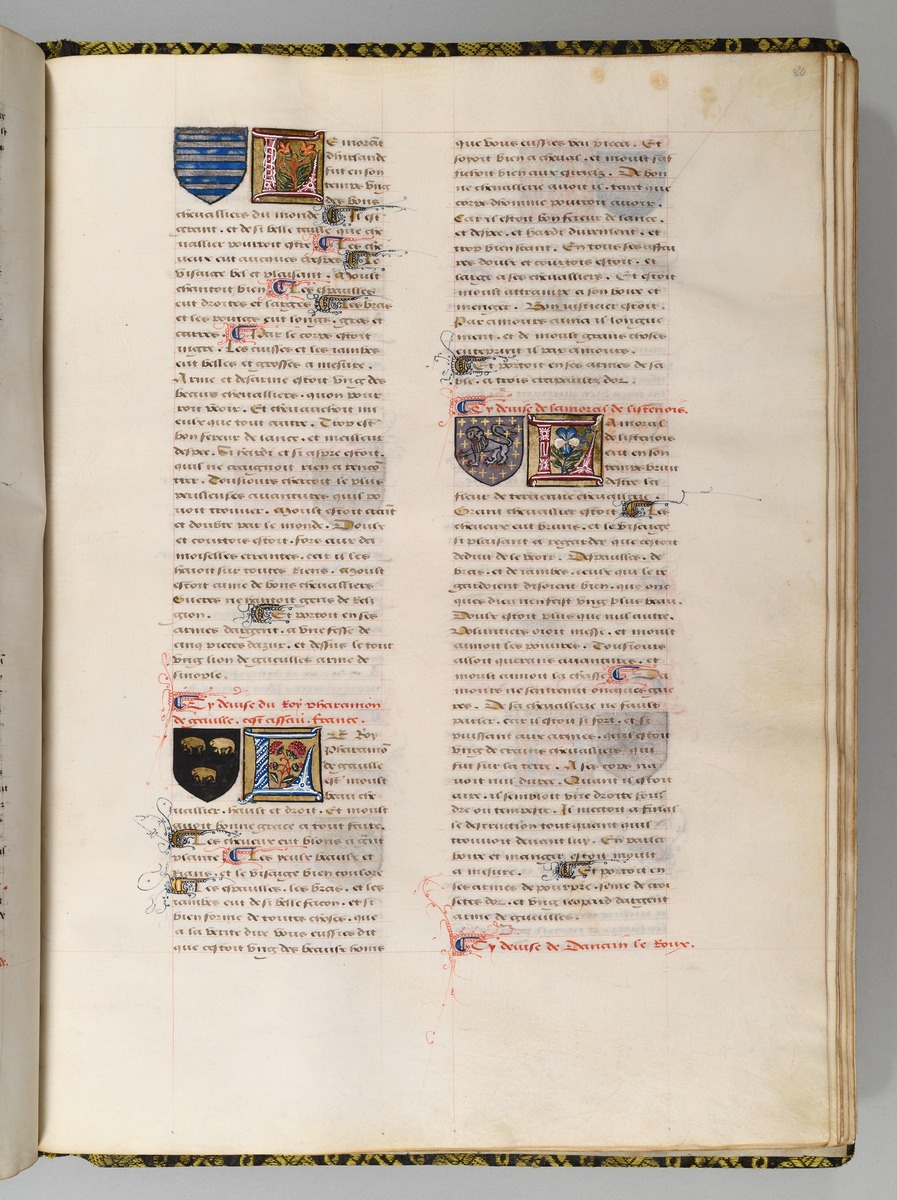 80
E morait
dhirlande
fut en son
temps ung
des bons
chevalliers du monde Il est
grant . et de si belle taille que che
vallier pourroit estre Les che
veux eut aucques crespes Le
visaige bel et plaisant . Moult
chantoit bien Les espaulles
eut droites et larges Les bras
et les poings eut longs . gros et
carres . Par le corps estoit
maigre . Les cuisses et les iambes
eut belles et grosses a mesure .
Arme et desarme estoit ung des
beaux chevalliers . quon peur
roit veoir . Et chevauchoit mi
eulx que tout autre . Trop est
bon fereur de lance . et meilleur
despee . Si hardi et si aspre estoit .
quil ne craignoit rien a rencon
trer . Tousiours cherchoit le plus
perilleuses avantures quil po
voit trouver . Moult estoit craint
et doubte par le monde . Doulx
et courtois estoit . fors aux da
moiselles errantes . car il les
haioit sur toutes riens . Moult
estoit aime de bons chevalliers
Gueres ne hantoit gens de reli
gion . Et portoit en ses
armes dargent . a une fesse de
cinq pieces dazur . et dessus le tout
ung lion de gueulles arme de
sinople .
Cy devise du Roy pharamon
de gaulle . cest assavoir france .
E Roy
Pharamon
de gaulle
est moult
beau che
vallier . hault et droit . Et moult
avoit bonne grace a tout faire .
Les cheveux eut blons a grant
plante Les yeulx beaulx et
rians . et le visaige bien coulore
Les espaulles . les bras . et les
iambes eut de si belle facon . et si
bien forme de toutes choses . que
a la verite dire vous eussies dit
que cestoit ung des beaulx homs
que vous eussies veu pieca . Et
seoyoit bien a cheval . et moult saf
fichoit bien aux estriefz . De bon
ne chevallerie avoit il . tant que
corps dhomme pourroit avoir .
Car il estoit bon fereur de lance .
et despee . et hardi durement . et
trop bien seant . En tous ses affai
res doulx et courtois estoit . et
large a ses chevalliers . Et estoit
moult attrampe a son boire et
menger . Bon iusticier estoit .
Par amours aima il longue
ment . et de moult grans choses
entreprint il par amours .
Et portoit en ses armes de sa
ble . a trois crapaulx dor .
Cy devise de lamorat de listenois .
Amorat
de listenois
eut en son
temps bruit
destre la
fleur de terrienne chevallerie .
Grant chevallier estoit Les
cheveux eut bruns . et le visaige
si plaisant a regarder que cestoit
deduit de le veoir . Despaulles . de
bras . et de iambes . ceulx qui le re
gardoient disoient bien . que onc
ques dieu nen feist ung plus beau .
Doulx estoit plus que nul autre .
Voluntiers oioit messe . et moult
aimoit les pouvres . Tousiours
alloit querans avantures . et
moult aimoit la chasse Da
mours ne sentremit oncques gue
res . De sa chevallerie ne fault
parler . car il estoit si fort . et si
puissant aux armes . quil estoit
ung de crains chevalliers qui
fut sur la terre . A ses cops na
voit nul duree . Quant il estoit
ire . il sembloit une droite foul
dre ou tempeste . Il mectoit a final
le destruction tout quant quil
trouvoit devant luy . En parler
boire et manger estoit moult
a mesure . Et portoit en
ses armes de pourpre . seme de croi
setes dor . et ung leopard dargent
arme de gueulles .
Cy devise de Danain le Roux .